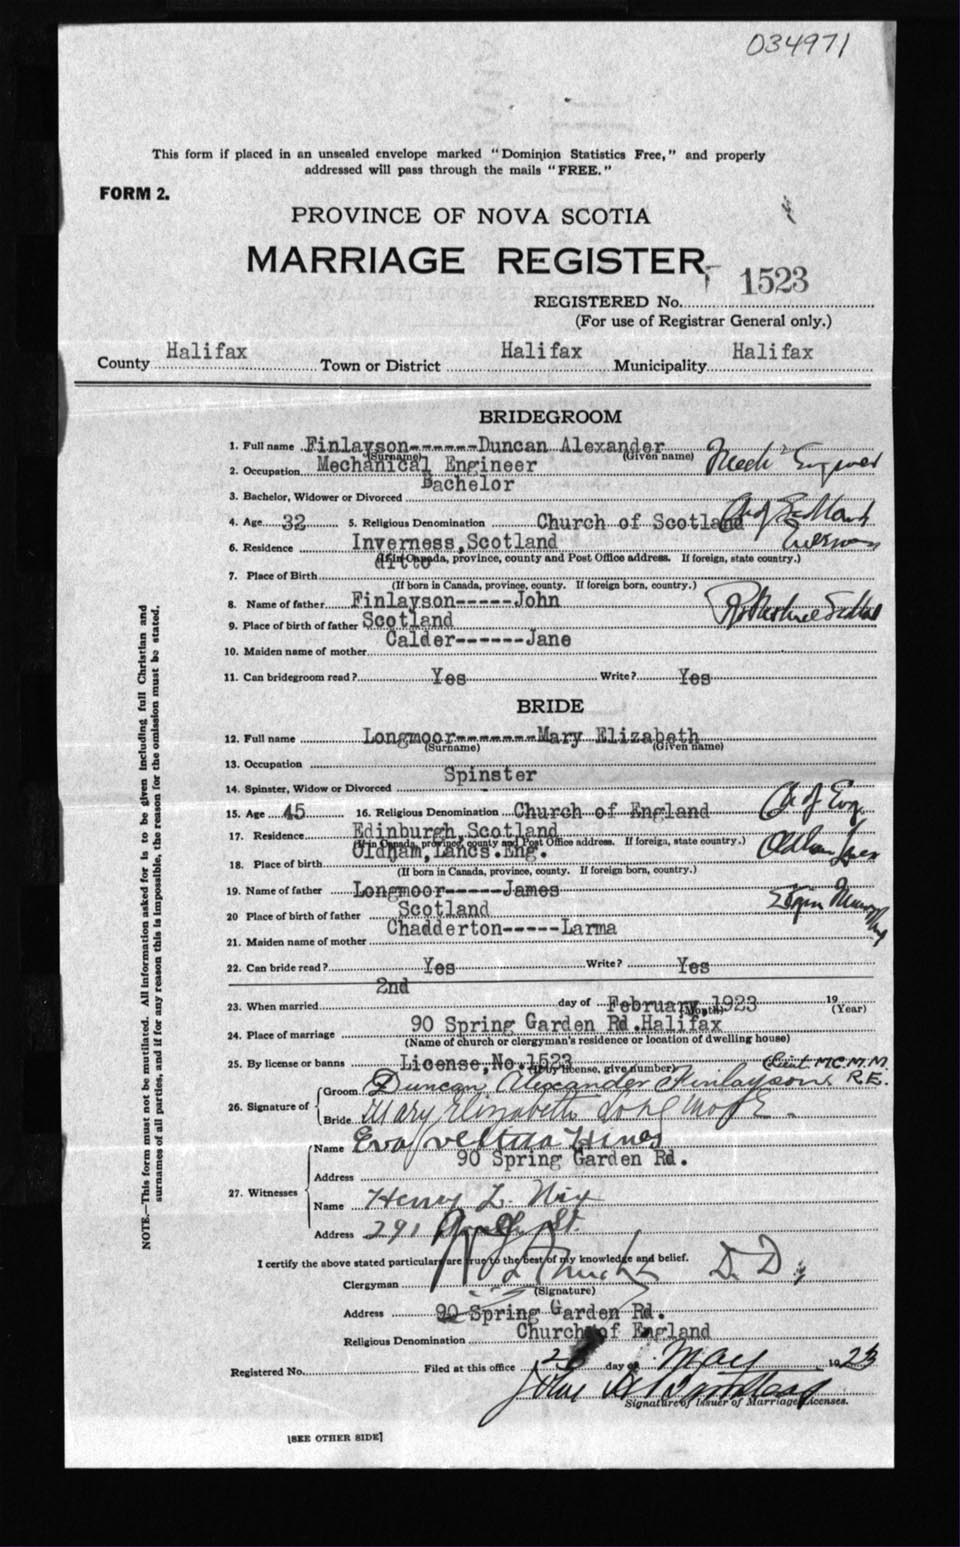 034971
This form if placed in an unsealed envelope marked "Dominion Statistics Free," and properly
addressed will pass through the mails "FREE."
FORM 2.
PROVINCE OF NOVA SCOTIA
MARRIAGE REGISTER
REGISTERED No. 1523
(For use of Registrar General only.)
County Halifax Town or District Halifax Municipality Halifax
BRIDEGROOM
1. Full name Finlayson------Duncan Alexander
(Surname) (Given name)
2. Occupation Mechanical Engineer
3. Bachelor, Widower or Divorced Bachelor
4. Age 32 5. Religious Denomination Church of Scotland
6. Residence Inverness,Scotland
(If in Canada, province, county and Post Office address. If foreign, state country.)
7. Place of Birth ditto
(If born in Canada, province, county. If foreign born, country.)
8. Name of father Finlayson-----John
9. Place of birth of father Scotland
10. Maiden name of mother Calder------Jane
11. Can bridegroom read? Yes Write? Yes
BRIDE
12. Full name Longmoor-------Mary Elizabeth
(Surname) (Given name)
13. Occupation
14. Spinster, Widow or Divorced Spinster
15. Age 45 16. Religious Denomination Church of England Ch of Eng
17. Residence Edinburgh,Scotland
(If in Canada, province, county and Post Office address. If foreign, state country.)
18. Place of birth Oldham,Lancs.Eng.
(If born in Canada, province, county. If foreign born, country.)
19. Name of father Longmoor-----James
20 Place of birth of father Scotland
21. Maiden name of mother Chadderton-----Larma
22. Can bride read? Yes Write? Yes
23. When married 2nd day of February,1923 19
(Month) (Year)
24. Place of marriage 90 Spring Garden Rd.Halifax
(Name of church or clergyman's residence or location of dwelling house)
25. By license or banns License,No.1523
(If by license, give number) Lieut. M.C. M.M.
R.E.
26. Signature of Groom Duncan Alexander Finlayson
Bride Mary Elizabeth Longmoor
27. Witnesses Name Eva Hines
Address 90 Spring Garden Rd.
Name Henry L. Nix
Address 291 St.
I certify the above stated particulars are true to the best of my knowledge and belief.
Clergyman D. D.
(Signature)
Address 90 Spring Garden Rd.
Religious Denomination Church of England
Registered No. Filed at this office day of May 1923
John
Signature of Issuer of Marriage Licenses.
[SEE OTHER SIDE]
NOTE.—This form must not be mutilated. All information asked for is to be given including full Christian and
surnames of all parties, and if for any reason this is impossible, the reason for the omission must be stated.